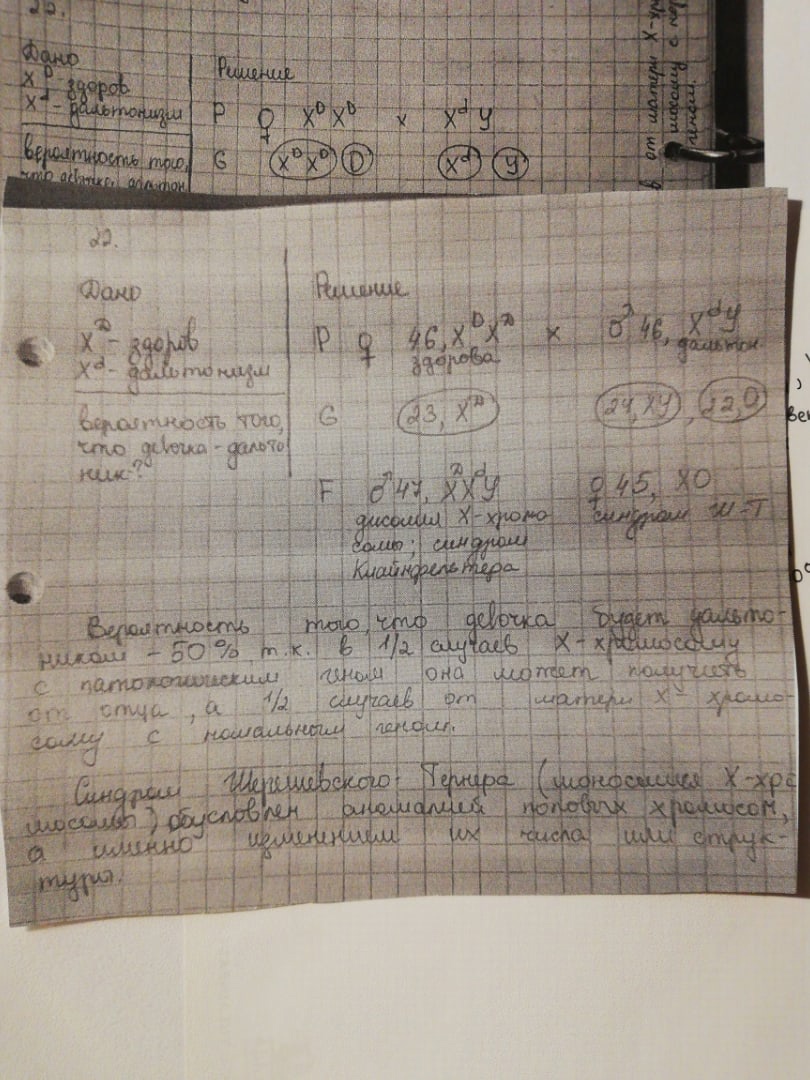 22.
Дано
X^D - здоров
X^d - дальтонизм
вероятность того,
что девочка дальтон
Решение
P ♀ X^D X^D × X^d Y
G X^D X^D D X^d Y
от матери X-хр
с но
геном.
22.
Дано
X^D - здоров
X^d - дальтонизм
вероятность того,
что девочка - дальто
ник-?
Решение
P ♀ 46, X^D X^D × ♂ 46, X^d Y
здорова дальтон
G 23, X^D 24, XY, 22, 0
F ♂ 47, X^D X^d Y ♀ 45, X0
дисомия X-хромо синдром Ш-Т
сомы; синдром
Клайнфельтера
Вероятность того, что девочка будет дальто-
ником - 50%, т.к. в 1/2 случаев X-хромосому
с патологическим геном она может получить
от отца, а 1/2 случаев от матери X- хромо-
сому с номальным геном.
Синдром Шерешевского-Тернера (моносомия X-хро
мосомы) обусловлен аномалией половых хромосом,
а именно изменением их числа или струк-
туры.